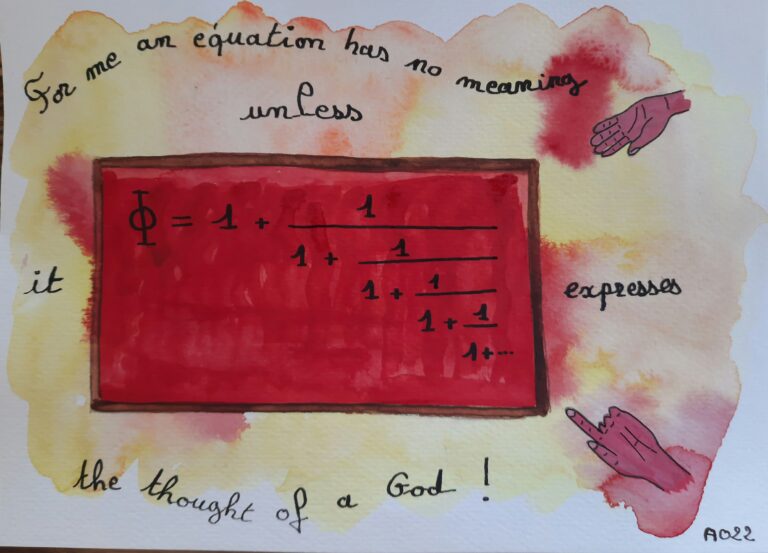 For me an équation has no meaning
unless
Φ = 1 + 1
1 + 1
1 + 1
1 + 1
1+...
it
expresses
the thought of a God !
A022